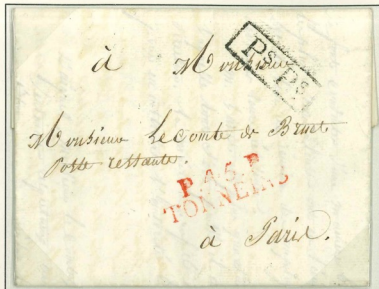 à Monsieur
Ps. Ps.
Monsieur Le Comte de Bruet
Poste restante.
P. 45. P.
TONNEINS
à Paris.